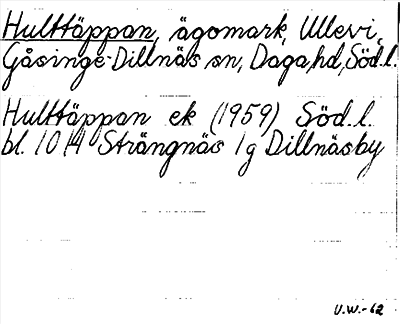 Hulttäppan, ägomark, Ullevi,
Gåsinge-Dillnäs sn, Daga hd, Söd.l.
Hulttäppan ek (1959) Söd.l.
bl. 10 I4 Strängnäs 1g Dillnäsby
U.W.-62